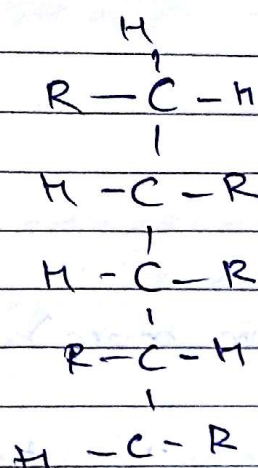 H
R — C — H
H — C — R
H — C — R
R — C — H
H — C — R